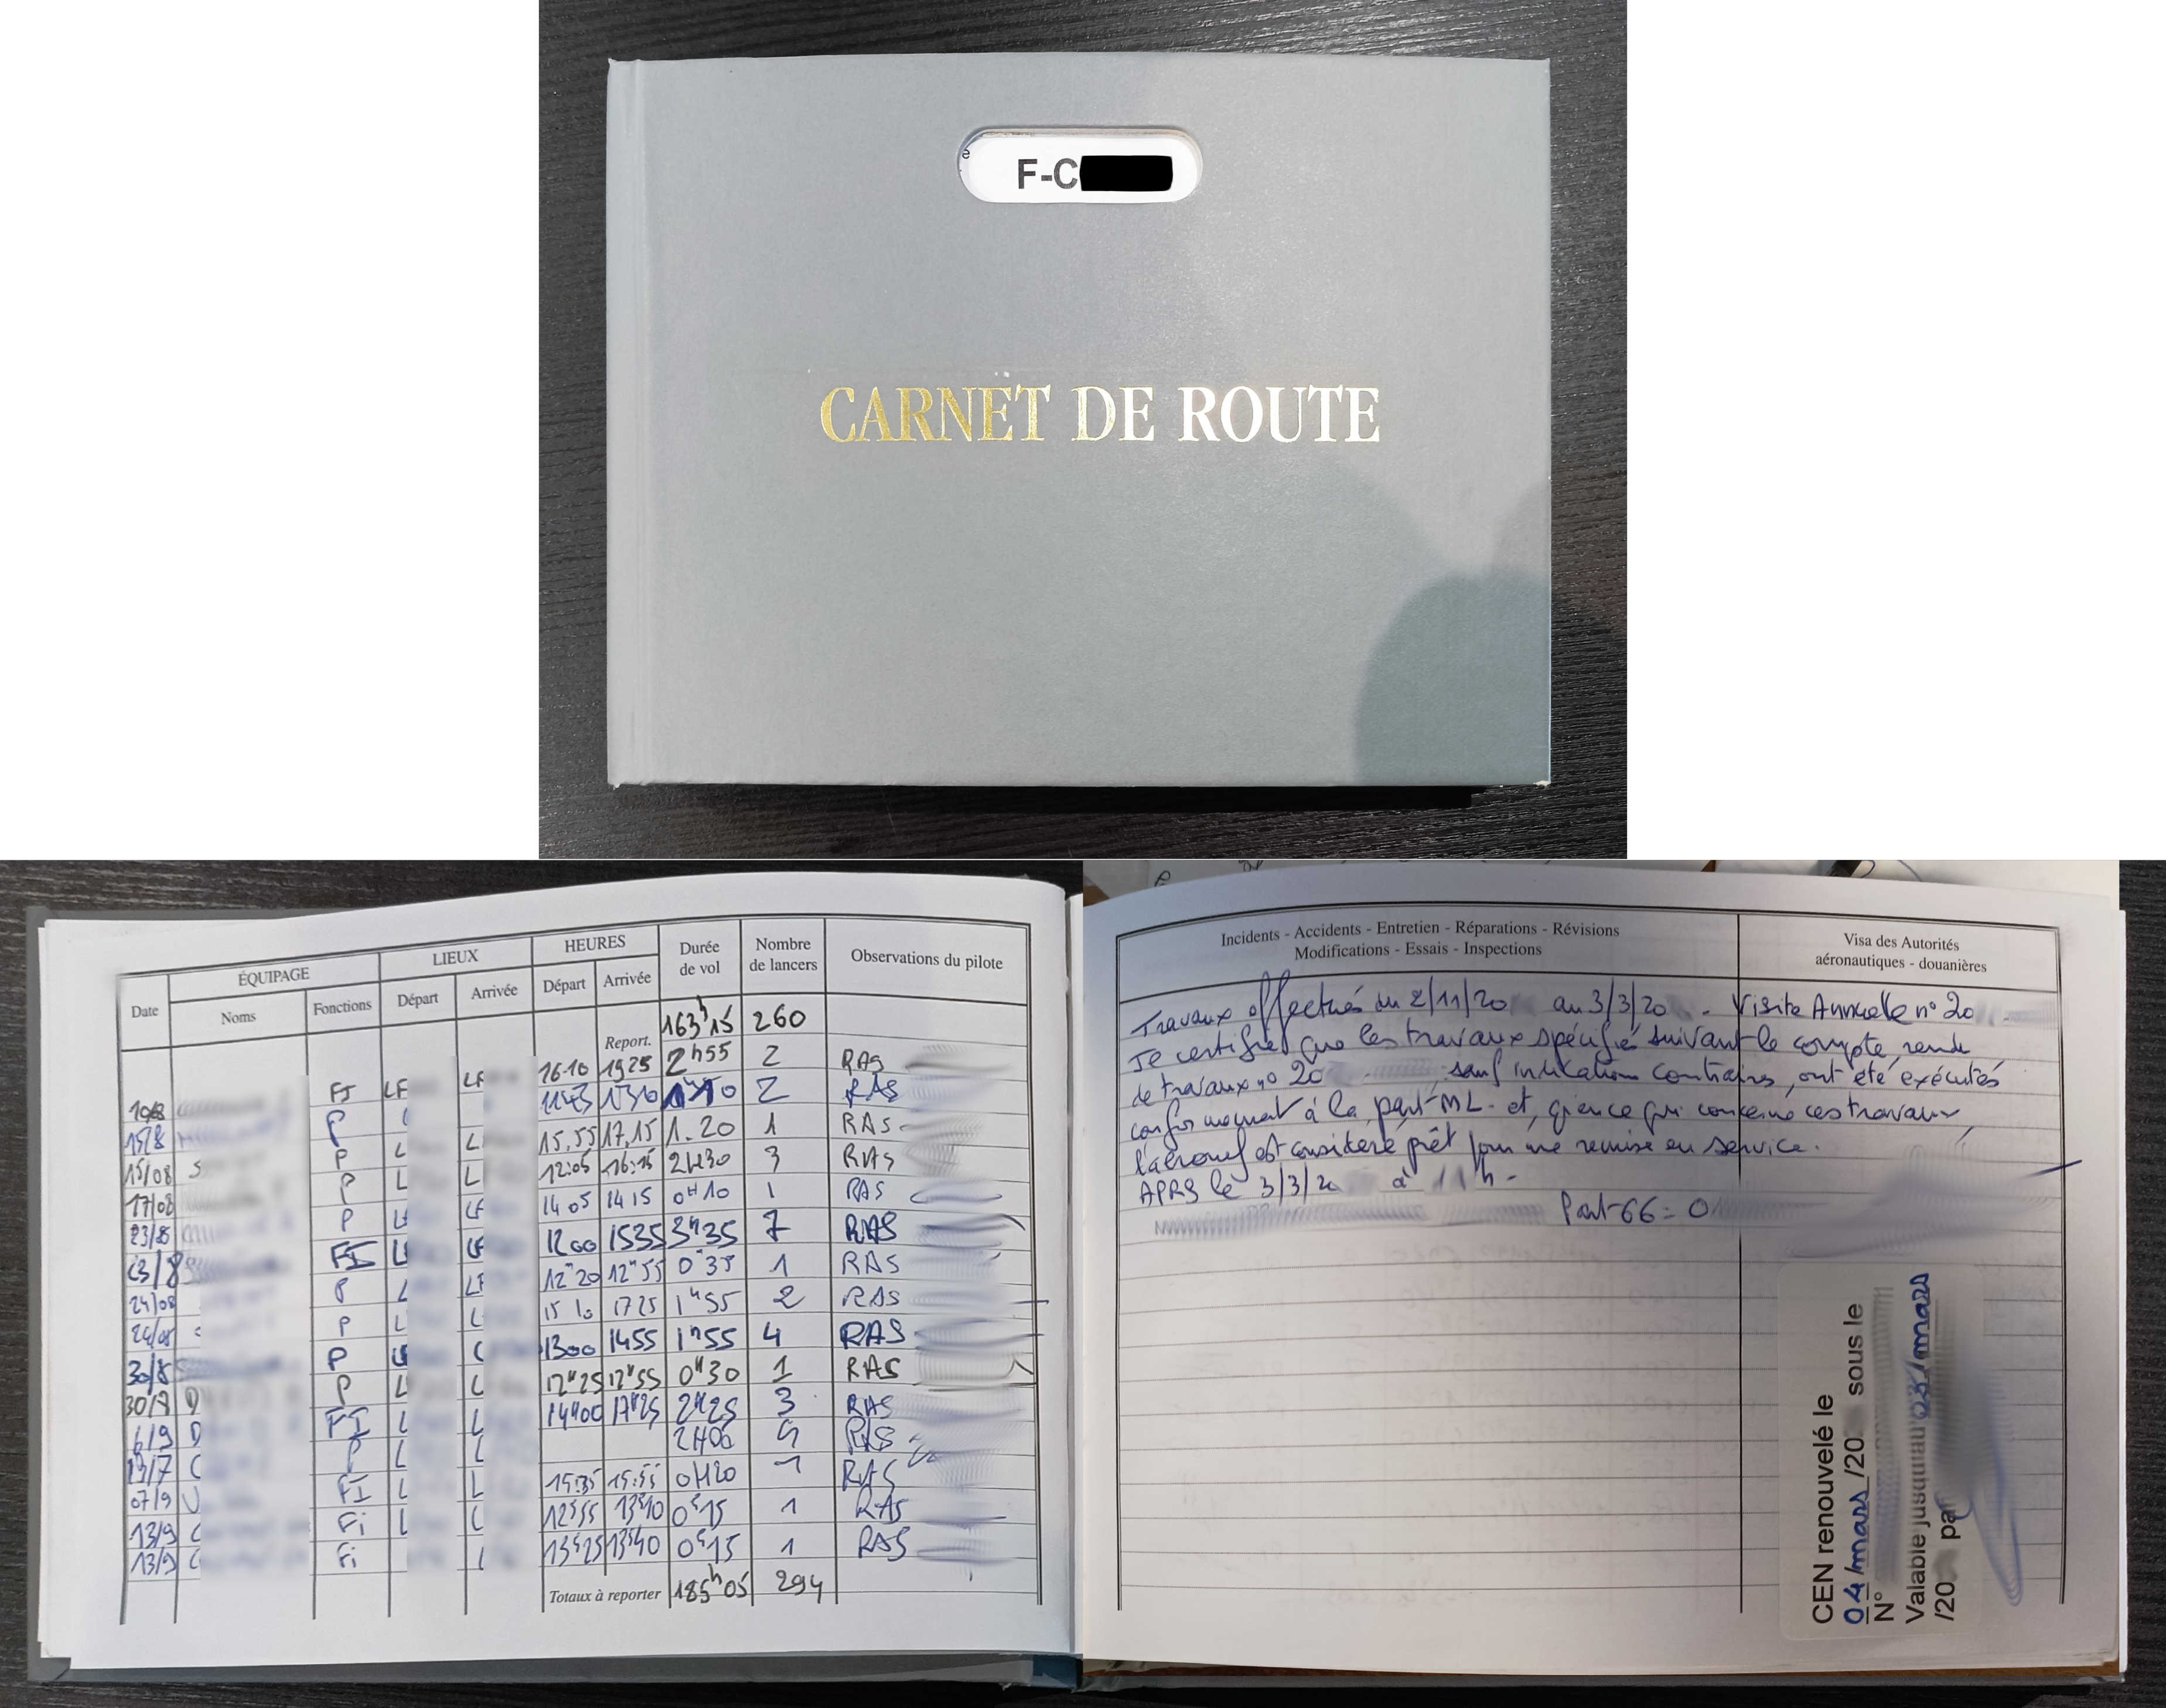 F-C
CARNET DE ROUTE
Date ÉQUIPAGE LIEUX HEURES Durée de vol Nombre de lancers Observations du pilote
Noms Fonctions Départ Arrivée Départ Arrivée
Report. 163h15 260
10/8 FI LF LF 16 10 19 25 2h55 2 RAS
15/8 P 2 RAS
15/08 S P L L 15.55 17.15 1.20 1 RAS
17/08 P L L 12:05 16:15 2H30 3 RAS
23/8 P LF LF 14 05 14 15 0H10 1 RAS
23/8 FI LF LF 1200 1535 3h35 7 RAS
24/08 P L LF 12h20 12h55 0h35 1 RAS
24/08 P L L 15 10 17 25 1h55 2 RAS
30/8 P LF L 1300 1455 1h55 4 RAS
30/8 D P L L 12h25 12h55 0h30 1 RAS
6/9 D FI L L 14h00 17h25 2h25 3 RAS
C P L L 2H00 RAS
07/9 FI L L 15:35 15:55 0H20 1 RAS
13/9 C Fi L L 12h55 13h10 0h15 1 RAS
13/9 C Fi L 13h25 13h40 0h15 1 RAS
Totaux à reporter 185h05 294
Incidents - Accidents - Entretien - Réparations - Révisions
Modifications - Essais - Inspections
Visa des Autorités
aéronautiques - douanières
Travaux effectués du 2/11/20 au 3/3/20 - Visite Annuelle n° 20
Je certifie que les travaux spécifiés suivant le compte rendu
de travaux n° 20 , sauf indications contraires, ont été exécutés
conformément à la part-ML et, qu'en ce qui concerne ces travaux,
l'aéronef est considéré prêt pour une remise en service.
APRS le 3/3/2 à 11h -
Part-66 = 0
CEN renouvelé le
04/mars /20 sous le
N°
Valable jusqu'au 03/mars
/20 par